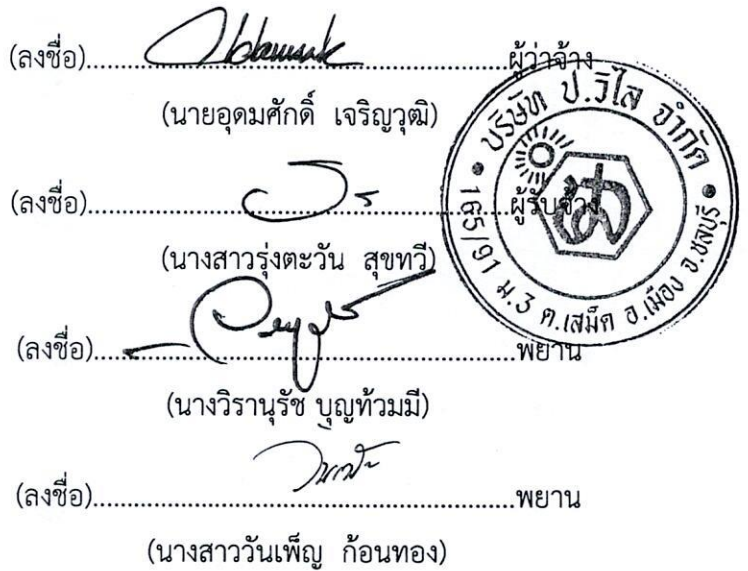 (ลงชื่อ)..........................................................ผู้ว่าจ้าง
(นายอุดมศักดิ์ เจริญวุฒิ)
(ลงชื่อ)..........................................................ผู้รับจ้าง
(นางสาวรุ่งตะวัน สุขทวี)
(ลงชื่อ)..........................................................พยาน
(นางวิรานุรัช บุญท้วมมี)
(ลงชื่อ)..........................................................พยาน
(นางสาววันเพ็ญ ก้อนทอง)
บริษัท ป.วิไล จำกัด
165/91 ม.3 ต.เสม็ด อ.เมือง จ.ชลบุรี